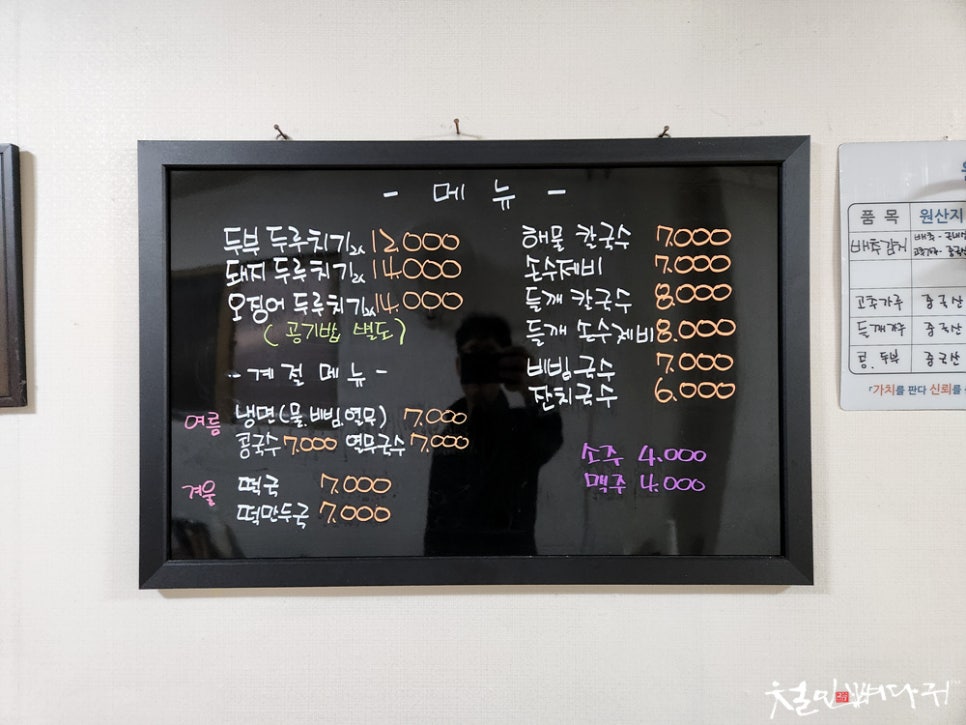 - 메 뉴 -
두부 두루치기 12.000
돼지 두루치기 14.000
오징어 두루치기 14.000
(공기밥 별도)
- 계 절 메 뉴 -
여름 냉면(물.비빔.열무) 7.000
콩국수 7.000 열무국수 7.000
겨울 떡국 7.000
떡만두국 7.000
해물 칼국수 7.000
손수제비 7.000
들깨 칼국수 8.000
들깨 손수제비 8.000
비빔국수 7.000
잔치국수 6.000
소주 4.000
맥주 4.000
품 목 원산지
배추김치 배추 -
고춧가루 중국산
들깨가루 중국산
콩. 두부 중국산
「가치를 판다 신뢰를
철민뼈다귀